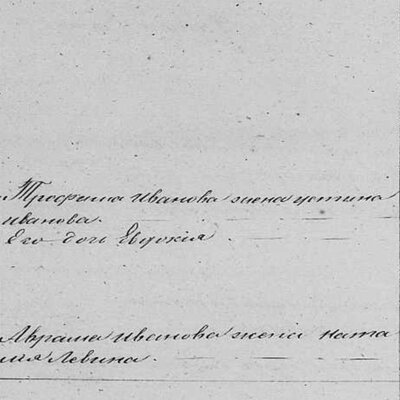 Трофима Иванова жена устина
иванова
Его дочь Евдокія
Аврама Иванова жена ната
лия Левина